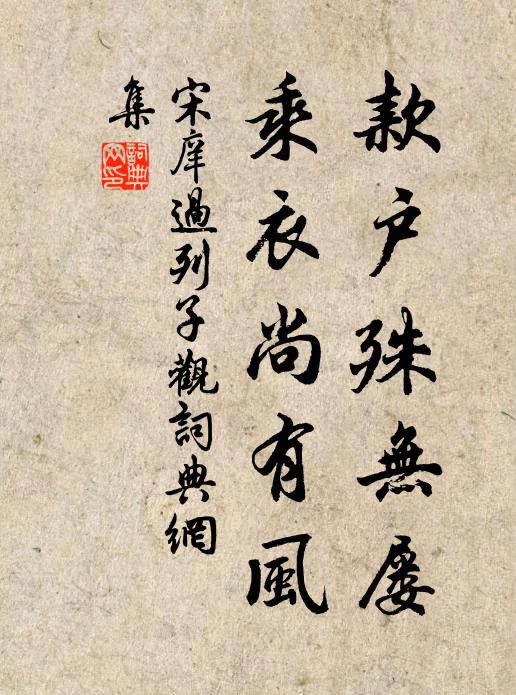 款户殊無屢
乘衣尚有風
宋庠過列子觀詞典網
集
詞典
网印